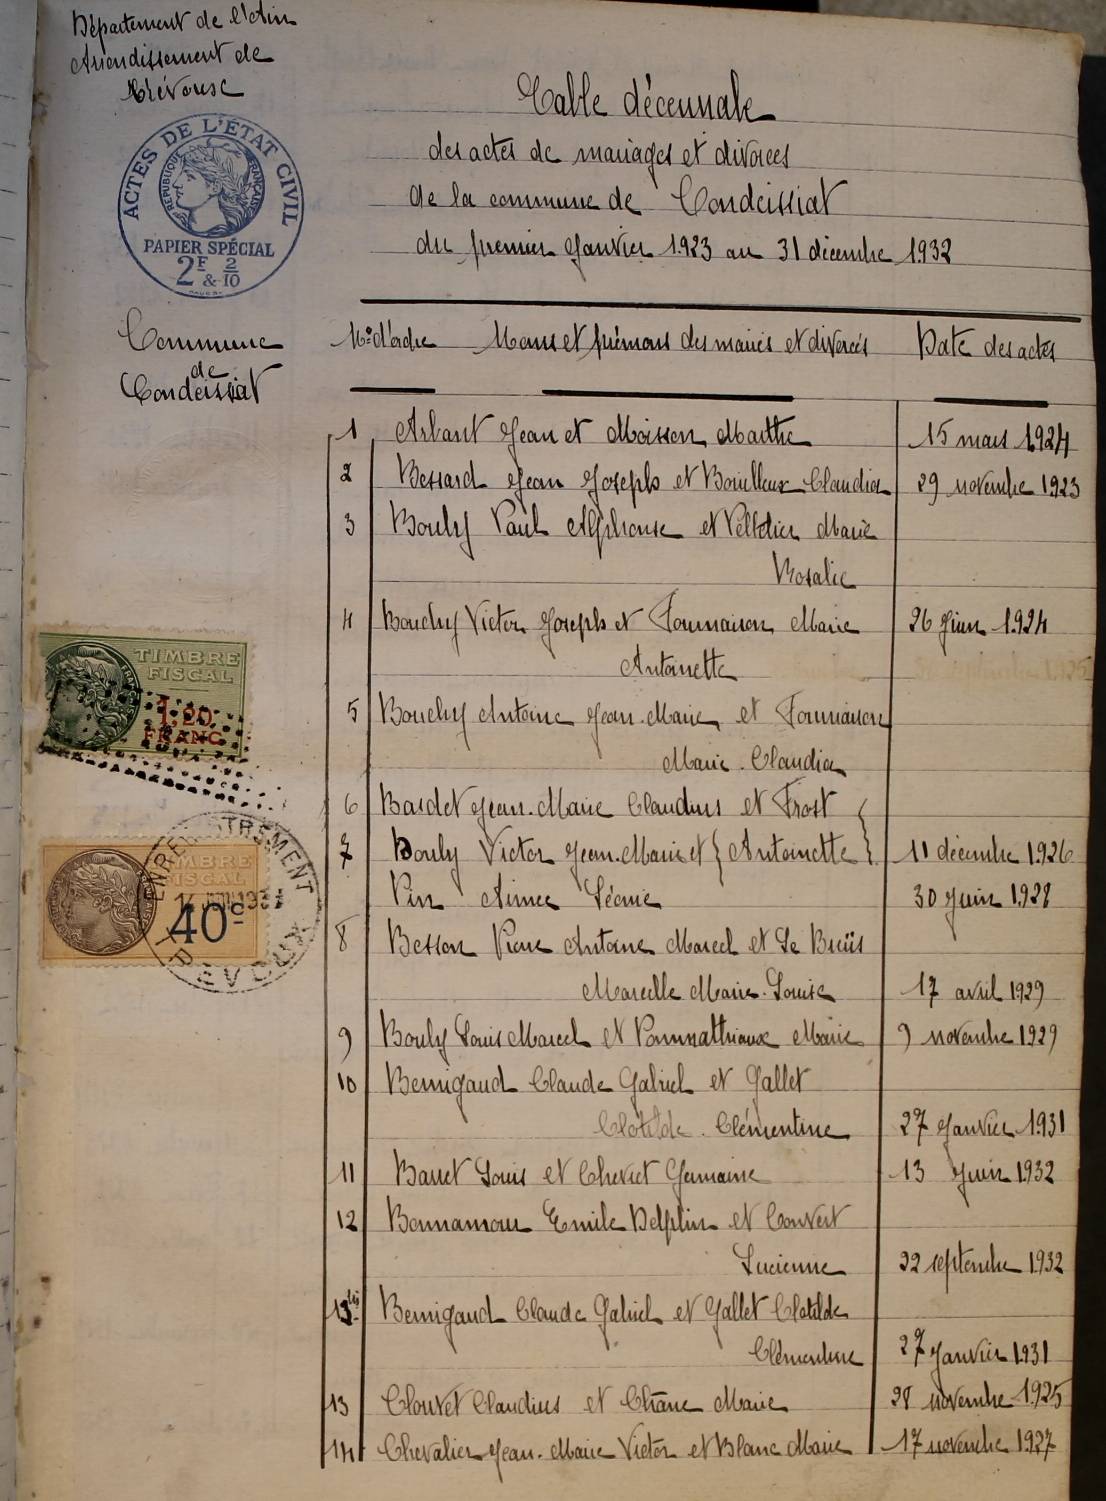 Département de l'Ain
Arrondissement de
Trévoux
ACTES DE L'ETAT CIVIL
REPUBLIQUE FRANÇAISE
PAPIER SPÉCIAL
2F & 2/10
Commune
de
Condeissiat
Table décennale
des actes de mariages et divorces
de la commune de Condeissiat
du premier Janvier 1923 au 31 décembre 1932
No d'ordre Noms et prénoms des mariés et divorcés Date des actes
1 Arbant Jean et Moisson Marthe 15 mars 1924
2 Bessard Jean Joseph et Bouilloux Claudia 29 novembre 1923
3 Bouly Paul Alphonse et Pelletier Marie
Rosalie
4 Bouchy Victor Joseph et Fournaison Marie 26 Juin 1924
Antoinette
5 Bouchy Antoine Jean-Marie et Fournaison
Marie-Claudia
6 Bardet Jean-Marie Claudius et Frost
7 Bouly Victor Jean-Marie et { Antoinette } 11 décembre 1926
Pin Aimée Léonie 30 Juin 1928
8 Besson Pierre Antoine Marcel et Le Breüs
Marcelle Marie-Louise 17 avril 1929
9 Bouly Louis Marcel et Pommathiaux Marie 9 novembre 1929
10 Bernigaud Claude Gabriel et Gallet
Clotilde Clémentine 27 Janvier 1931
11 Barret Louis et Chevret Germaine 13 Juin 1932
12 Bonnamour Emile Delphin et Convert
Lucienne 22 septembre 1932
13 bis Bernigaud Claude Gabriel et Gallet Clotilde
Clémentine 27 Janvier 1931
13 Claudius et Marie 28 novembre 1925
14 Chevalier Jean-Marie Victor et Blanc Marie 17 novembre 1927
TIMBRE
FISCAL
1,20
FRANC
ENREGISTREMENT
TIMBRE
FISCAL
40c
TREVOUX